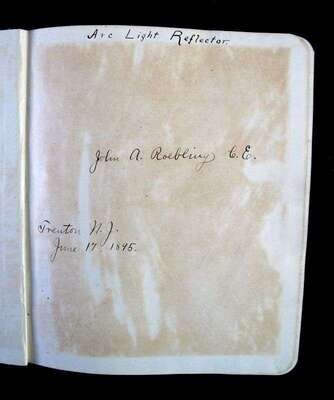 Arc Light Reflector.
John A. Roebling C.E.
Trenton N.J.
June 17 1895.